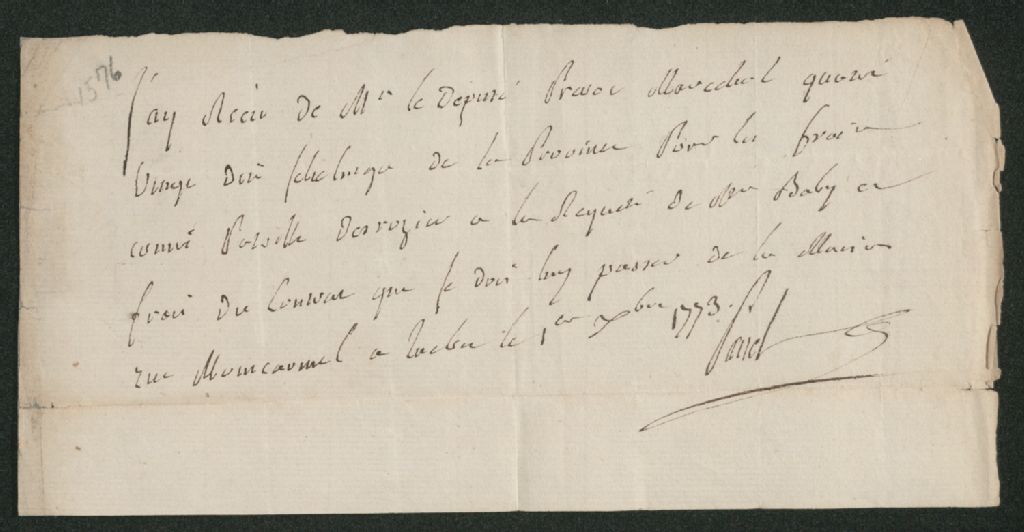 1576
J'ay Recu de Mr le Deputé Prevot Marechal quatre
vingt dix schelings de la Province Pour les frais
contre Derrozier a la Requete de Mr Baby et
frais du Contrat que je dois luy passer de la Maison
rue Montcarmel a Quebec le 1er xbre 1773.